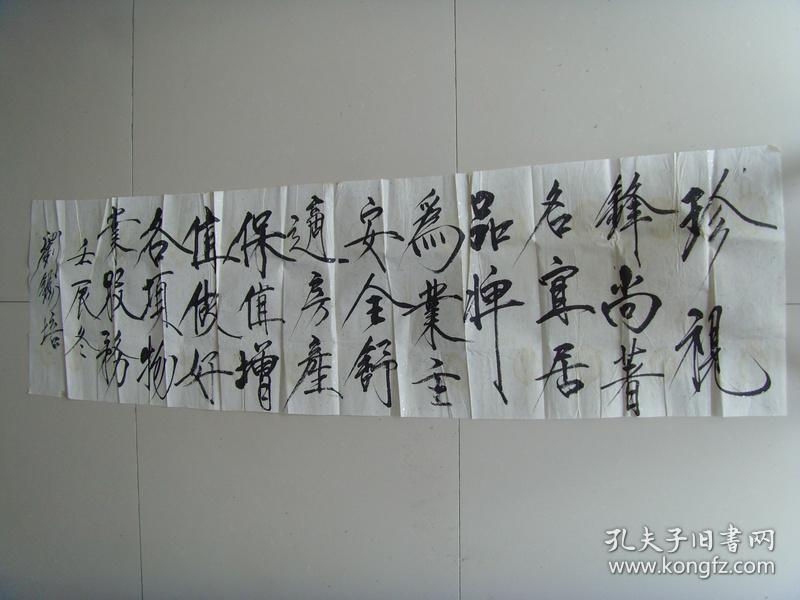 珍視
鋒尚著
名宜居
品牌
爲業主
安全舒
適房產
保值增
值做好
各項物
業服務
壬辰冬
孔夫子旧書网
www.kongfz.com